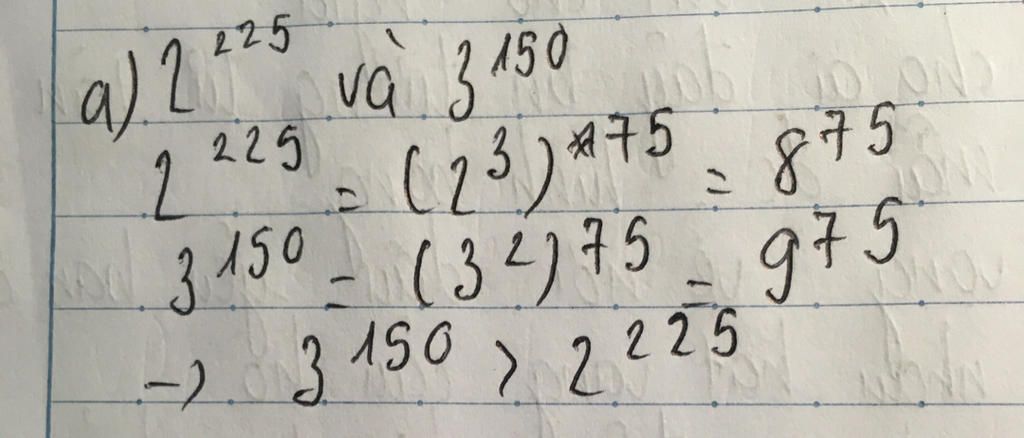 a) 2²²⁵ và 3¹⁵⁰
2²²⁵ = (2³)⁷⁵ = 8⁷⁵
3¹⁵⁰ = (3²)⁷⁵ = 9⁷⁵
→ 3¹⁵⁰ > 2²²⁵